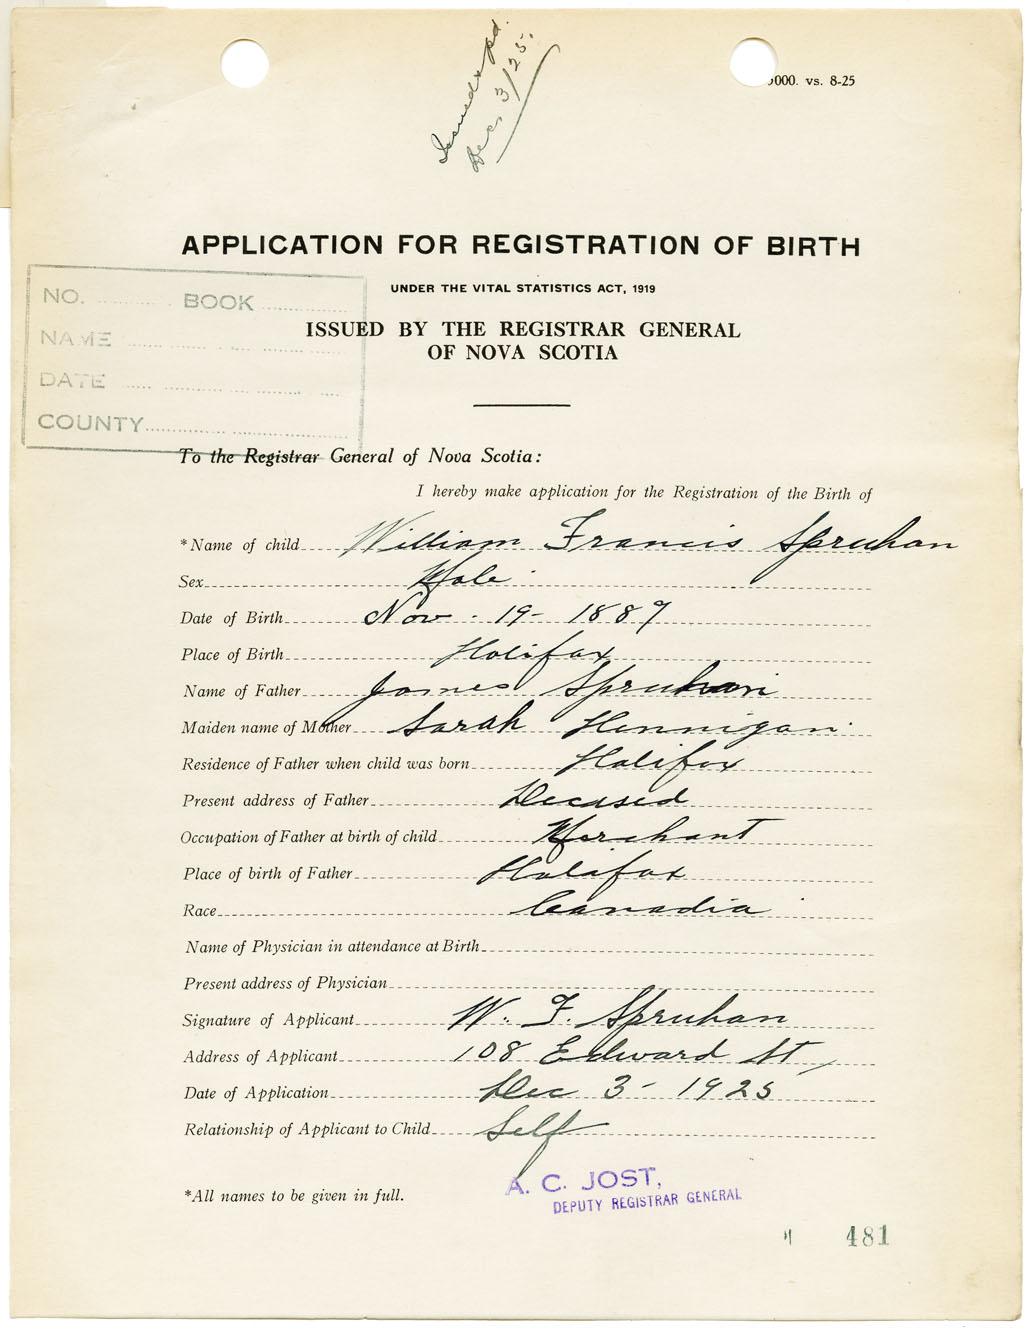 Issued & pd.
Dec. 3/25.
000. vs. 8-25
APPLICATION FOR REGISTRATION OF BIRTH
UNDER THE VITAL STATISTICS ACT, 1919
ISSUED BY THE REGISTRAR GENERAL
OF NOVA SCOTIA
NO. BOOK
NAME
DATE
COUNTY
To the Registrar General of Nova Scotia:
I hereby make application for the Registration of the Birth of
*Name of child William Francis Spruhan
Sex Male
Date of Birth Nov - 19 - 1887
Place of Birth Halifax
Name of Father James Spruhan
Maiden name of Mother Sarah Hennigan
Residence of Father when child was born Halifax
Present address of Father Decased
Occupation of Father at birth of child Merchant
Place of birth of Father Halifax
Race Canadia
Name of Physician in attendance at Birth
Present address of Physician
Signature of Applicant W. F. Spruhan
Address of Applicant 108 Edward St,
Date of Application Dec 3 - 1925
Relationship of Applicant to Child Self
*All names to be given in full.
A. C. JOST,
DEPUTY REGISTRAR GENERAL
481